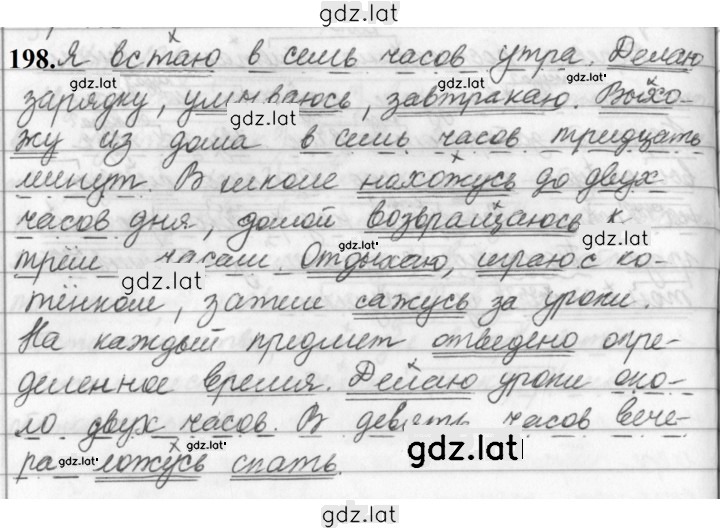 gdz.lat
198. Я встаю в семь часов утра. Делаю
gdz.lat gdz.lat
зарядку, умываюсь, завтракаю. Выхо-
gdz.lat
жу из дома в семь часов тридцать
минут. В школе нахожусь до двух
часов дня, домой возвращаюсь к
gdz.lat gdz.lat
трём часам. Отдыхаю, играю с ко-
gdz.lat
тёнком, затем сажусь за уроки.
На каждый предмет отведено опре-
деленное время. Делаю уроки око-
ло двух часов. В девять часов вече-
ра ложусь спать.
gdz.lat
gdz.lat
gdz.lat